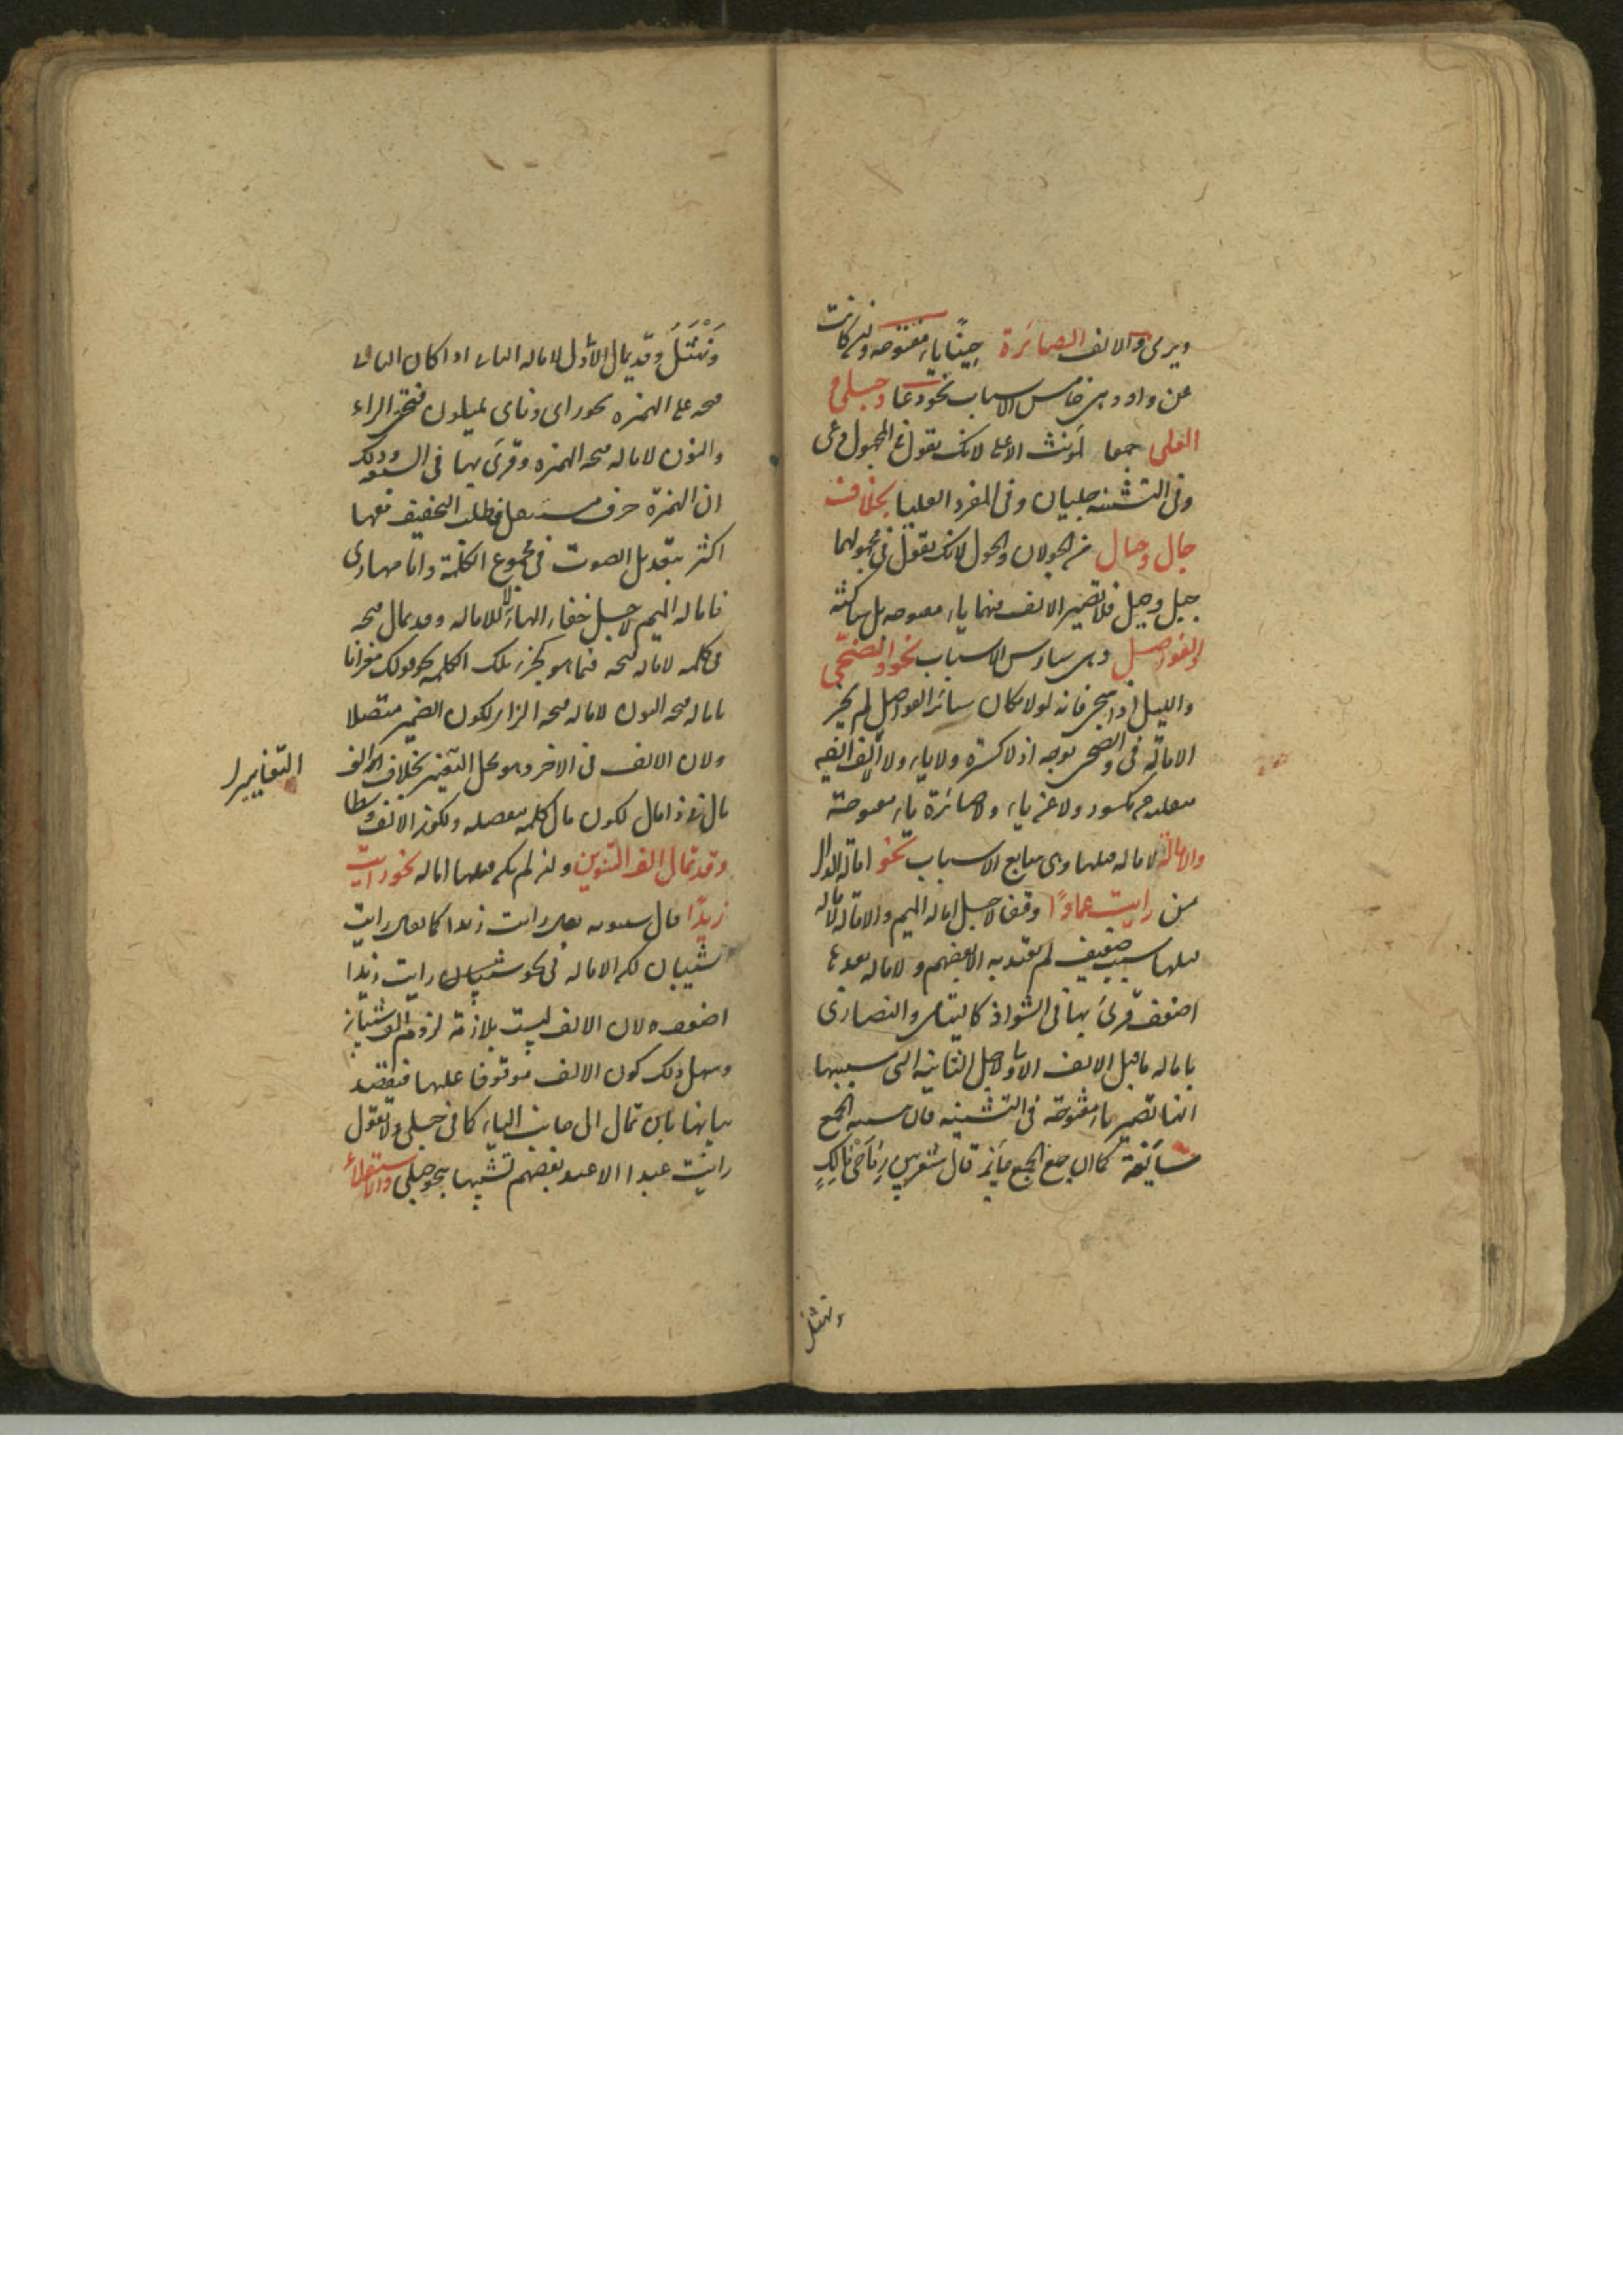 ويرمى والالف الصائرة حينًا ياء مفتوحة وان كانت
عن واو وهى خامس الاسباب نحو دعا وحبلى و
العلى جمعا لمؤنث الاعلى لانك تقول فى المجهول دعى
وفى التثنيه حبليان وفى المفرد العليا بخلاف
جال وحال من الجولان والحول لانك تقول فى مجهولهما
جيل وحيل فلا تصير الالف فيهما ياء مفتوحه بل ساكنة
والفواصل وهى سادس الاسباب نحو والضحى
والليل اذا سجى فانه لولا مكان سائر الفواصل لم يجز
الامالة فى والضحى بوجه اذ لا كسرة ولا ياء ولا الفه
منقلبه عن مكسور ولا عن ياء ولا صائرة ياء مفتوحة
والامالة لاماله قبلها وهى سابع الاسباب نحو امالة الدال
من رايت عمادًا وقفا لاجل اماله الميم والامالة لاماله
قبلها سبب ضعيف لم يعتد به الا بعضهم ولاماله بعدها
اضعف قرئ بها فى الشواذ كاليتامى والنصارى
باماله ما قبل الالف الاولى لاجل الثانيه التى سببها
انها تصير ياء مفتوحة فى التثنيه فان تثنيه الجمع
سائغة كما ان جمع الجمع جائز قال شعر بين رِمَاحَىْ مَالِكٍ
ونهشل
وَنَهْشَلَ وقد يمال الاول لاماله الثانى اذا كان الثانى
فتحه على الهمزه نحو راى ونأى فيميلون فتحتى الراء
والنون لاماله فتحه الهمزه وقرئ بهما فى السبعه وذلك
ان الهمزة حرف مستثقل فطلب التخفيف معها
اكثر بتعديل الصوت فى مجموع الكلمة واما مهارى
فاماله الميم لاجل خفاء الهاء لا للاماله وقد يمال فتحه
فى كلمه لاماله فتحه فيما هو كجزء تلك الكلمه كقولك معزانا
باماله فتحه النون لاماله فتحه الزاء لكون الضمير متصلا
ولان الالف فى الاخر وهو محل التغيير بخلاف الف
التغاييرا
مال من ذا مال لكون مال كلمه منفصله ولكون الالف وسطا
وقد تمال الف التنوين وان لم يكن قبلها اماله نحو رايت
زيدًا قال سيبويه يقال رايت زيدا كما يقال رايت
شيبان لكن الاماله فى نحو شيبان رايت زيدا
اضعف لان الالف ليست بلازمة لزوم الف شيبان
وسهل ذلك كون الالف موقوفا عليها فيقصد
بيانها بان تمال الى جانب الياء كما فى حبلى ولا تقول
رايت عبدا الا عند بعضهم تشبيها بنحو حبلى والاستعلاء